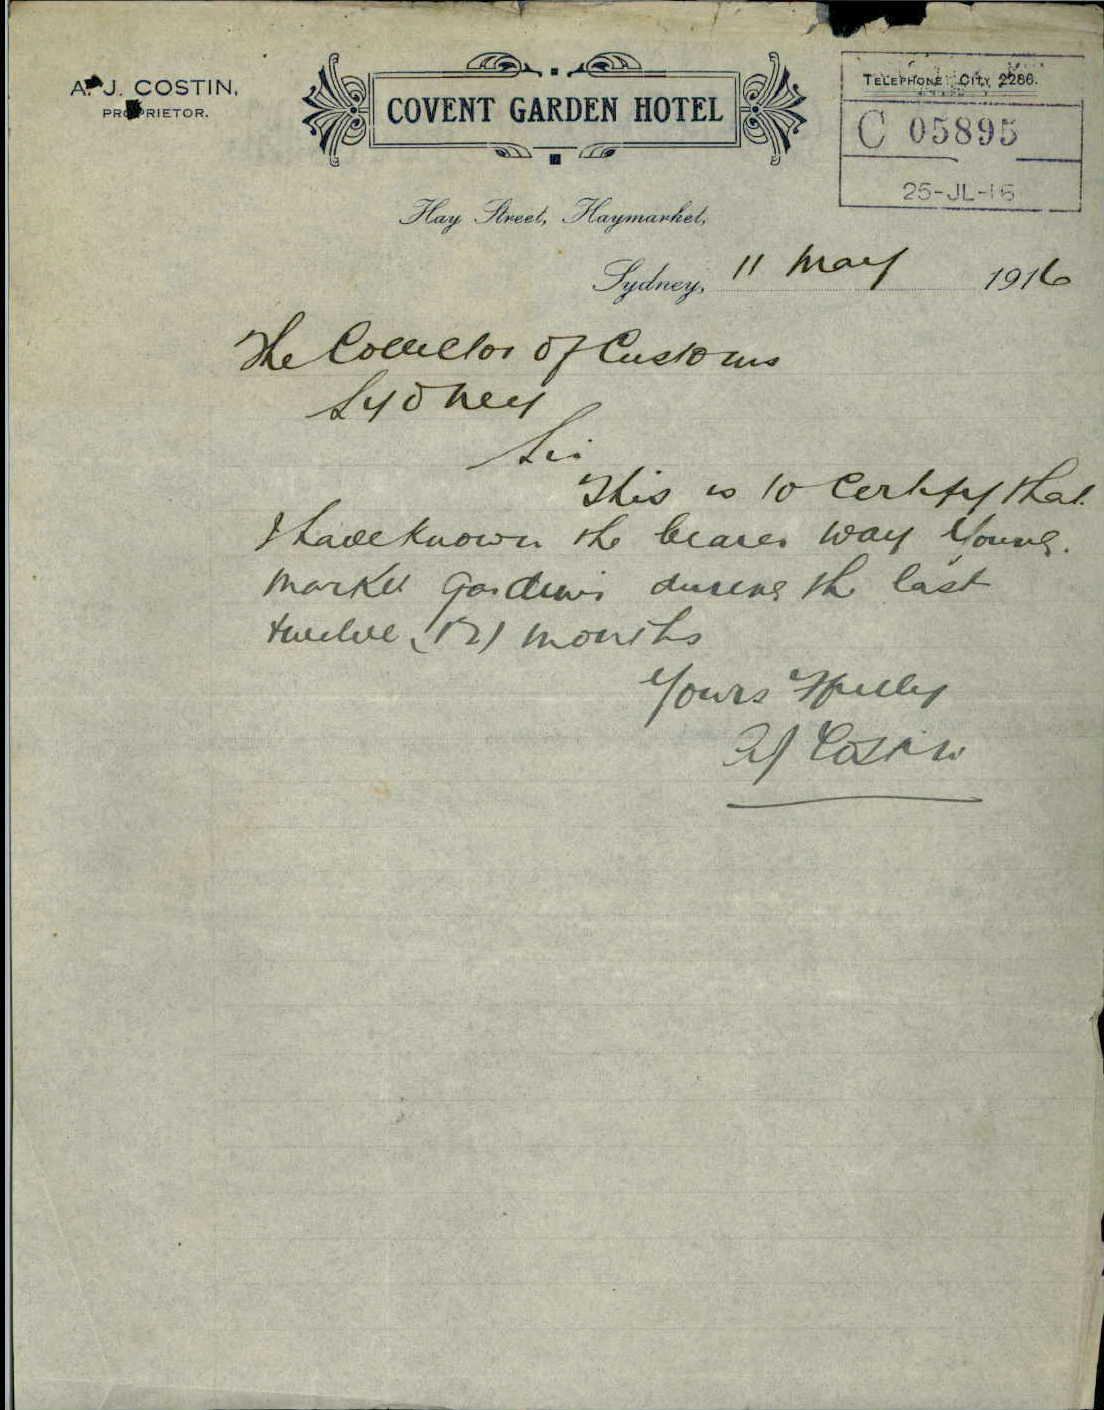 A. J. COSTIN,
PROPRIETOR.
COVENT GARDEN HOTEL
TELEPHONE CITY 2286.
C 05895
25-JL-16
Hay Street, Haymarket,
Sydney, 11 May 1916
The Collector of Customs
Sydney
Sir
This is to Certify that
I have known the bearer Way Young.
Market Gardener during the last
twelve (12) months
Yours Ffully
AJ Costin